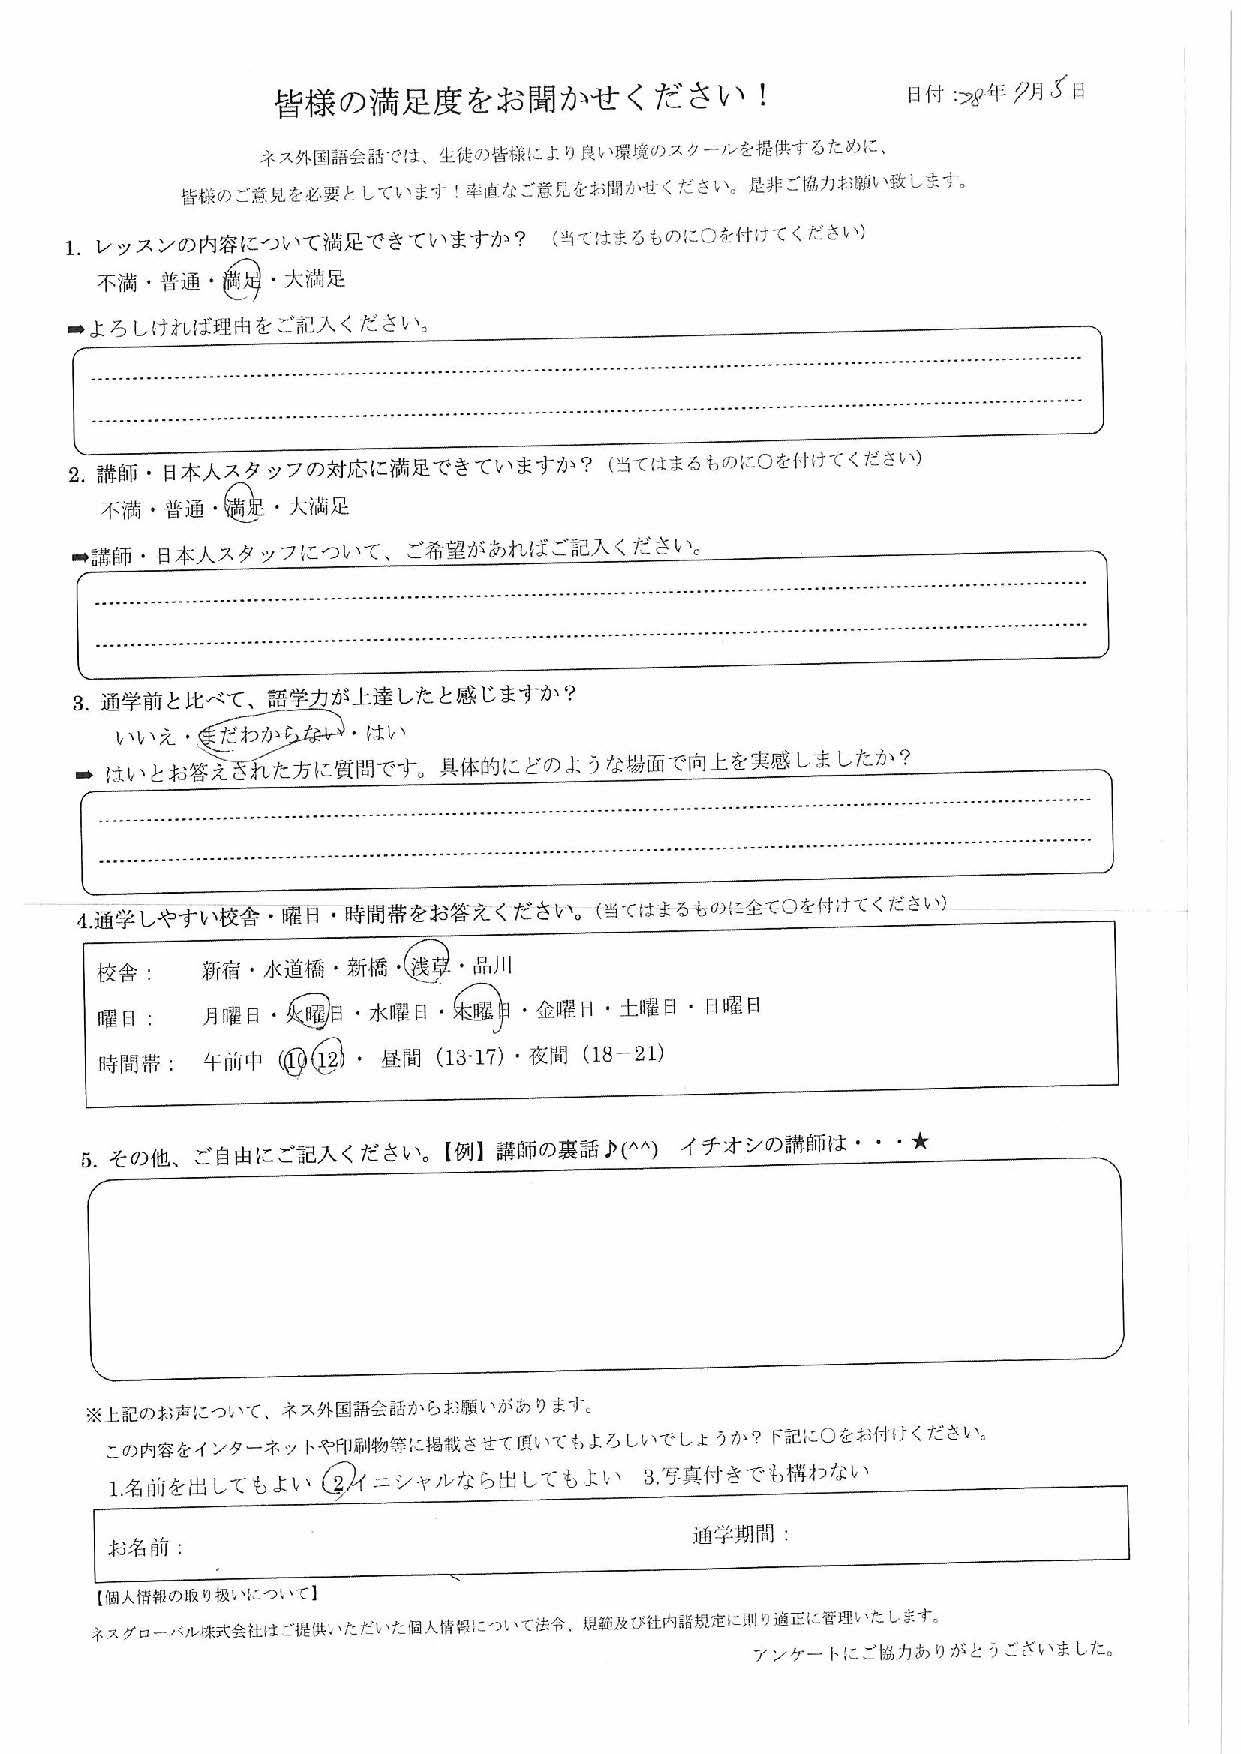 皆様の満足度をお聞かせください！
日付:28年9月5日
ネス外国語会話では、生徒の皆様により良い環境のスクールを提供するために、
皆様のご意見を必要としています！率直なご意見をお聞かせください。是非ご協力お願い致します。
1. レッスンの内容について満足できていますか？ （当てはまるものに〇を付けてください）
不満・普通・満足・大満足
➡よろしければ理由をご記入ください。
2. 講師・日本人スタッフの対応に満足できていますか？（当てはまるものに〇を付けてください）
不満・普通・満足・大満足
➡講師・日本人スタッフについて、ご希望があればご記入ください。
3. 通学前と比べて、語学力が上達したと感じますか？
いいえ・まだわからない・はい
➡ はいとお答えされた方に質問です。具体的にどのような場面で向上を実感しましたか？
4.通学しやすい校舎・曜日・時間帯をお答えください。（当てはまるものに全て〇を付けてください）
校舎： 新宿・水道橋・新橋・浅草・品川
曜日： 月曜日・火曜日・水曜日・木曜日・金曜日・土曜日・日曜日
時間帯： 午前中（10-12）・ 昼間（13-17）・夜間（18－21）
5. その他、ご自由にご記入ください。【例】講師の裏話♪(^^) イチオシの講師は・・・★
※上記のお声について、ネス外国語会話からお願いがあります。
この内容をインターネットや印刷物等に掲載させて頂いてもよろしいでしょうか？下記に〇をお付けください。
1.名前を出してもよい 2.イニシャルなら出してもよい 3.写真付きでも構わない
お名前： 通学期間：
【個人情報の取り扱いについて】
ネスグローバル株式会社はご提供いただいた個人情報について法令、規範及び社内諸規定に則り適正に管理いたします。
アンケートにご協力ありがとうございました。